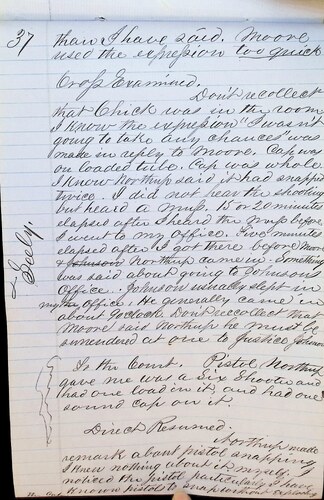 37
than I have said. Moore
used the expression too quick
Cross Examined.
Don't recollect
that Chick was in the room
I know the expression "I wasn't
going to take any chances" was
made in reply to Moore. Cap was
on loaded tube. Cap was whole.
I know Northup said it had snapped
twice. I did not hear the shooting
but heard a 15 or 20 minutes
elapsed after I heard the before
I went to my office. Five minutes
elapsed after I got there before Moore
& Johnson Northup came in. Something
was said about going to Johnson's
Office. Johnson usually slept in
my Office. He generally came in
about Don't recollect that
Moore said Northup he must be
surrendered at one to Justice Johnson
& Seely.
To the Court. Pistol Northup
gave me was a Six Shooter and
had one load in it and had one
sound cap on it.
Direct Resumed.
Northup made
remark about pistol snapping
I knew nothing about it myself. I
noticed the pistol particularly I have
known pistols to snap